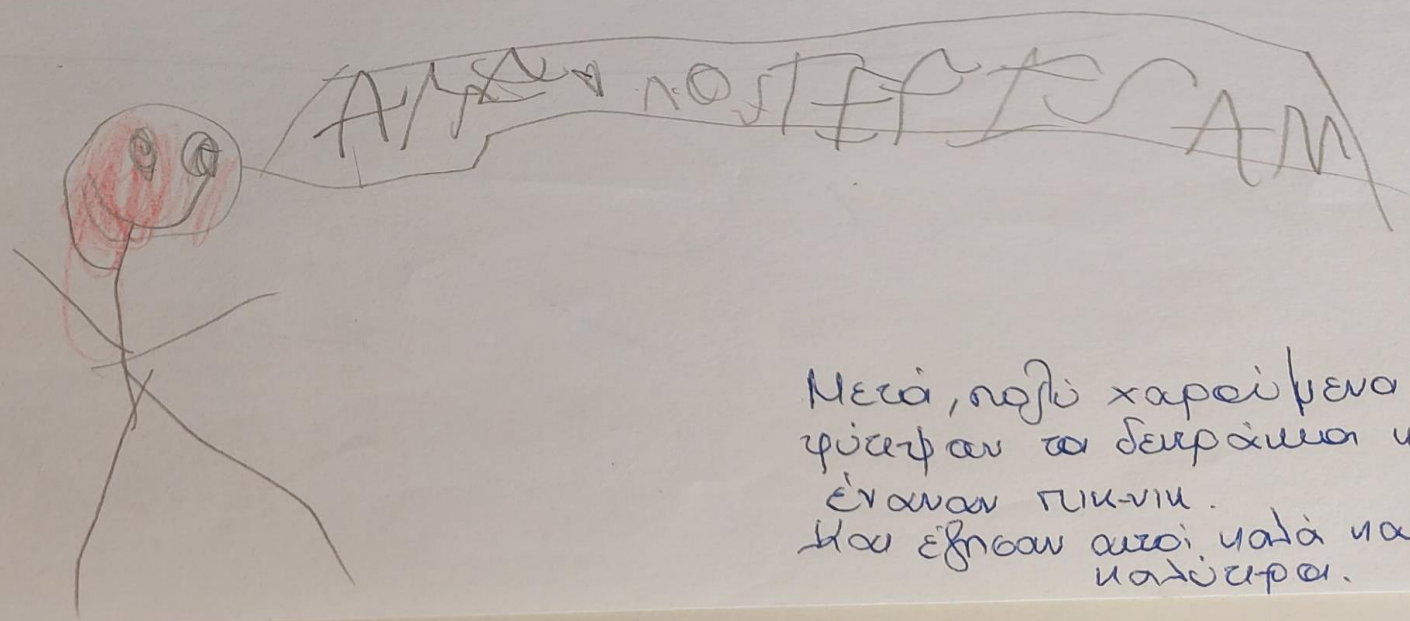 Μετά, πολύ χαρούμενα
φύτεψαν τα δεντράκια
έκαναν πικ-νικ.
Και έζησαν αυτοί καλά κα
καλύτερα.